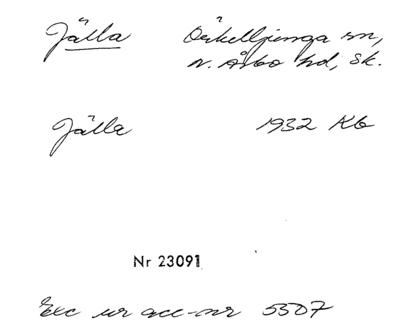 Jälla Örkelljunga sn,
N. Åsbo hd, Sk.
Jälla 1932 Kb
Nr 23091
Exc ur acc-nr 5507